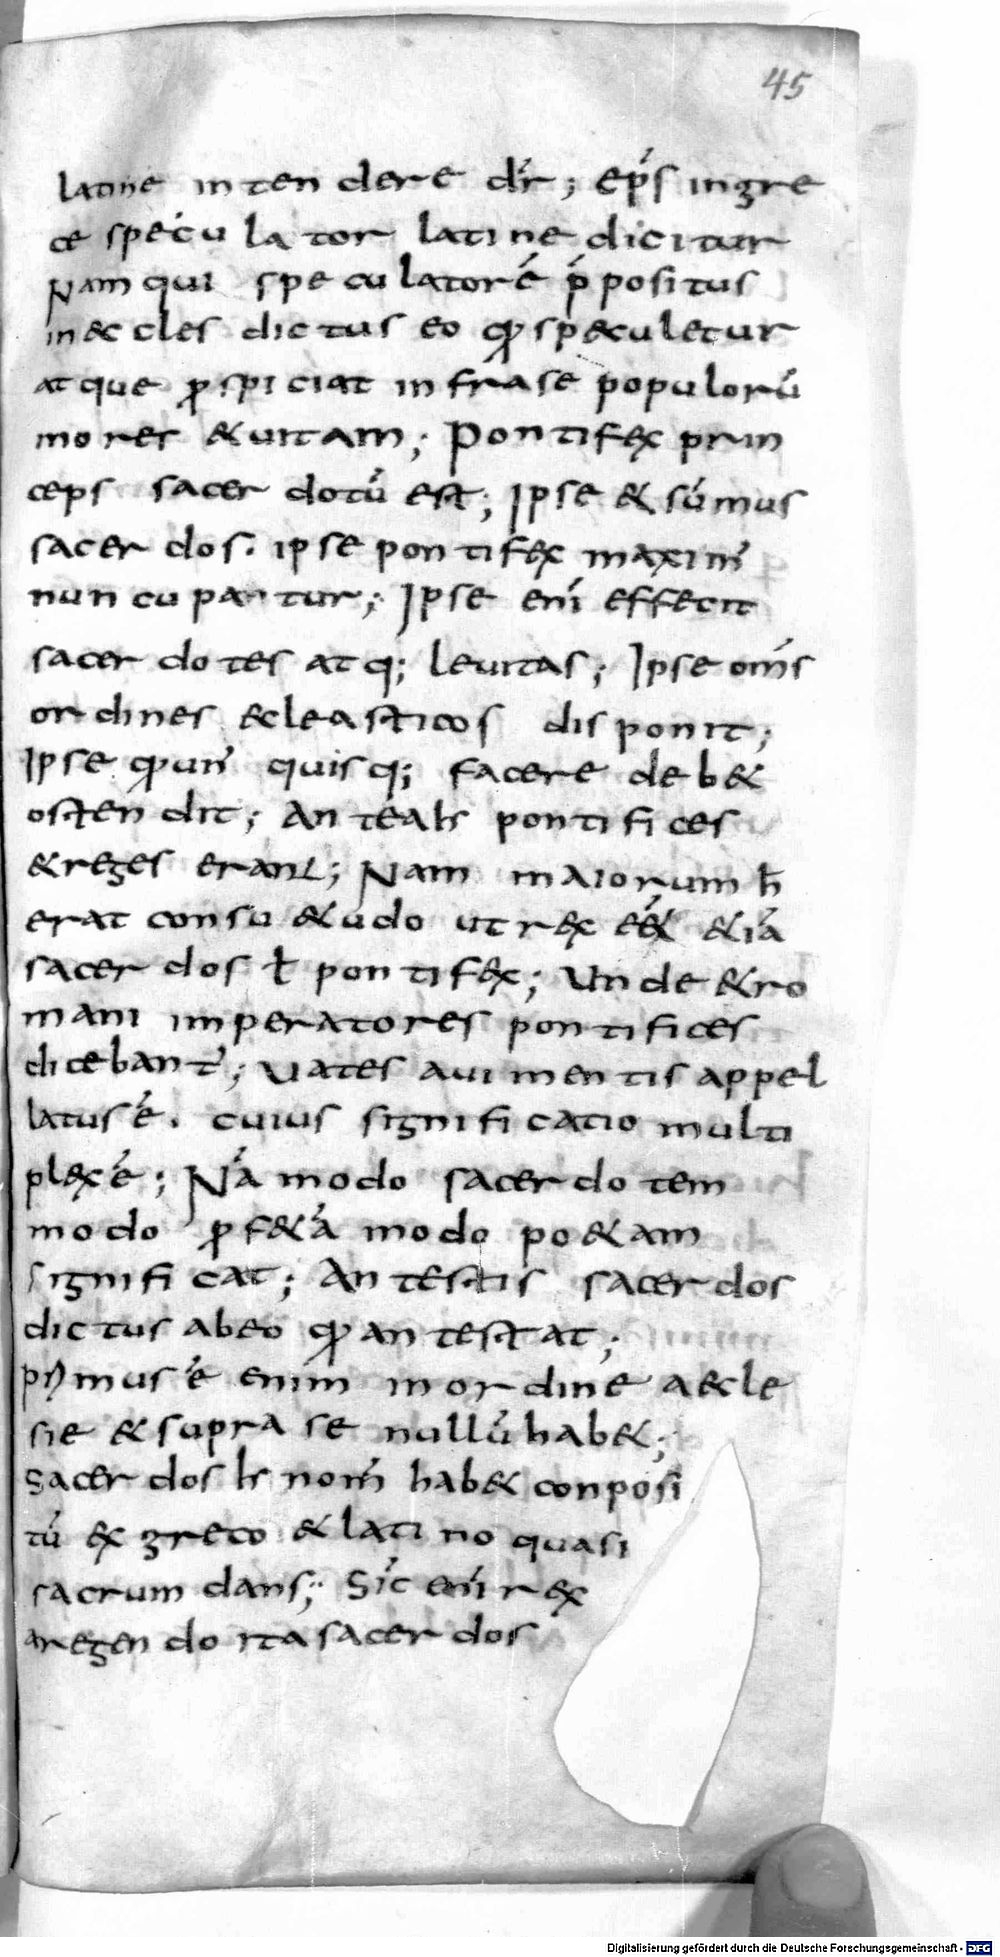 45
latine intendere dr̄; ep̄s ingre
ce speculator latine dicitur
Nam qui speculatore̅ p̄positus
in eccles dictus eo qꝓ speculetur
atque ꝓspiciat infra se populoru̅
mores & uitam; Pontifex prin
ceps sacerdotu̅ est; Ipse & su̅mus
sacerdos. ipse pontifex maxim̅
nuncupantur; Ipse eni̅ effecit
sacerdotes atq; leuitas; Ipse om̅s
ordines ecleasticos disponit;
Ipse qꝓ un̅ quisq; facere deb&
ostendit; Antea h̅ pontifices
& reges erant; Nam maiorum h̅
erat consu&udo ut rex e̅e̅& &ia̅
sacerdos ł pontifex; Unde & ro
mani imperatores pontifices
dicebant̅; Uates a ui mentis appel
latus e̅. cuius significatio multi
plex e̅; Na̅ modo sacerdotem
modo ꝓf&a̅ modo po&am
significat; Antestis sacerdos
dictus ab eo qꝓ antestat;
primus e̅ enim in ordine aecle
sie & supra se nullu̅ hab&;
Sacerdos h̅ nom̅ hab& conposi
tu̅ ex greco & latino quasi
sacrum dans; Sic̅ eni̅ rex
a regendo ita sacerdos
Digitalisierung gefördert durch die Deutsche Forschungsgemeinschaft - DFG